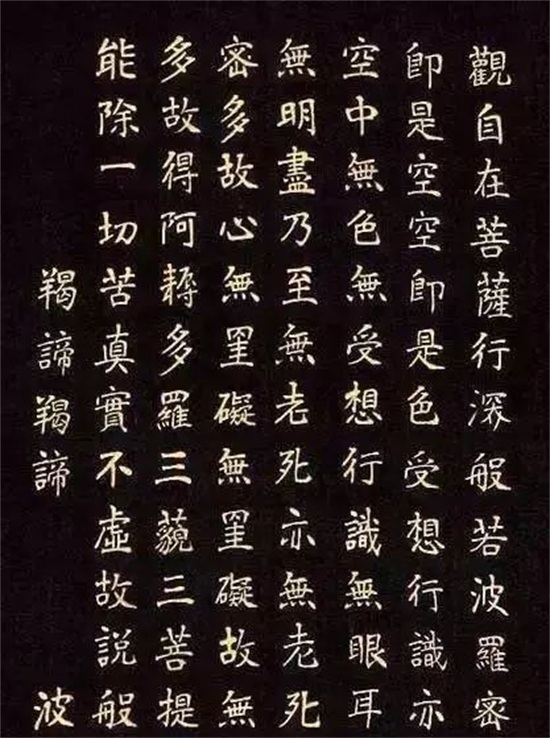 觀自在菩薩行深般若波羅密
卽是空空卽是色受想行識亦
空中無色無受想行識無眼耳
無明盡乃至無老死亦無老死
密多故心無罣礙無罣礙故無
多故得阿耨多羅三藐三菩提
能除一切苦真實不虛故説般
羯諦羯諦 波